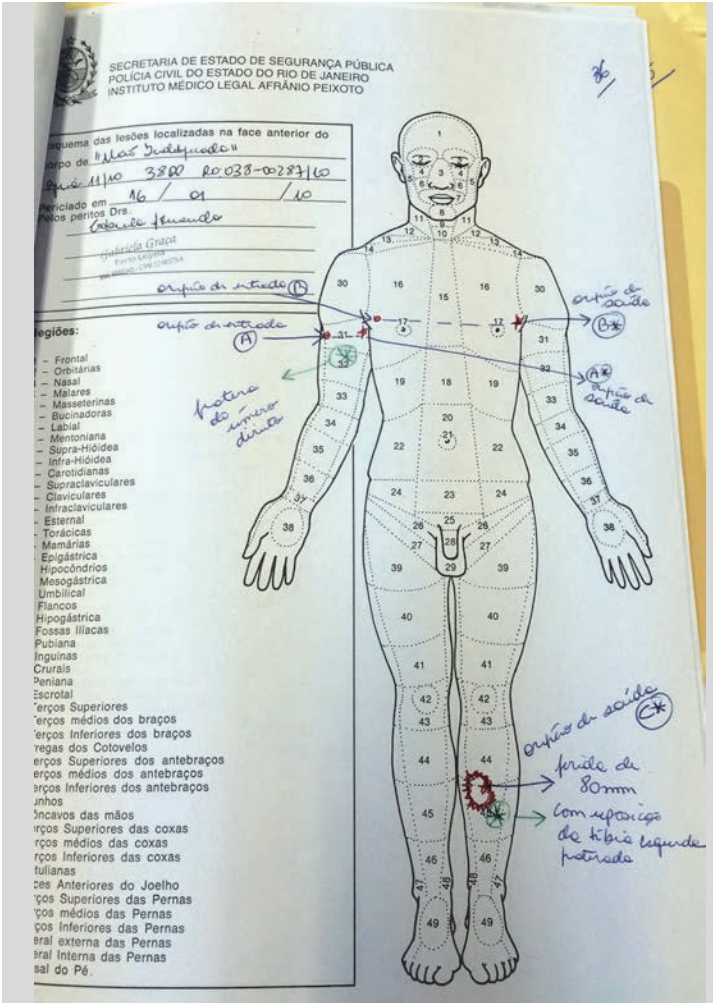 SECRETARIA DE ESTADO DE SEGURANÇA PÚBLICA
POLÍCIA CIVIL DO ESTADO DO RIO DE JANEIRO
INSTITUTO MÉDICO LEGAL AFRÂNIO PEIXOTO
36
quema das lesões localizadas na face anterior do
orpo de
11/10 RO 038-00287/10
Periciado em 16 / 01 /10
Pelos peritos Drs.
Gabriela Graça
Perito Legista
orifício de entrada B
orifício de entrada
A
orifício de saída
B*
A*
orifício de saída
fratura do úmero direito
egiões:
– Frontal
– Orbitárias
– Nasal
– Malares
– Masseterinas
– Bucinadoras
– Labial
– Mentoniana
– Supra-Hióidea
– Infra-Hióidea
– Carotidianas
– Supraclaviculares
– Claviculares
– Infraclaviculares
– Esternal
– Torácicas
– Mamárias
– Epigástrica
Hipocôndrios
Mesogástrica
Umbilical
Flancos
Hipogástrica
Fossas Ilíacas
Pubiana
Inguinas
Crurais
Peniana
Escrotal
Terços Superiores
Terços médios dos braços
Terços Inferiores dos braços
regas dos Cotovelos
erços Superiores dos antebraços
erços médios dos antebraços
erços Inferiores dos antebraços
unhos
ôncavos das mãos
rços Superiores das coxas
rços médios das coxas
rços Inferiores das coxas
tulianas
ces Anteriores do Joelho
ços Superiores das Pernas
ços médios das Pernas
ços Inferiores das Pernas
eral externa das Pernas
eral Interna das Pernas
sal do Pé.
1
2 3 4
5 4 6 6 5
7
8
11 9 11
12 10 12
14 13 13 14
30 16 15 16 30
17 17
31 31
32 32
33 19 18 19 33
34 20 34
21
35 22 22 35
36 36
37 24 23 24 37
38 25 38
26 28 26
27 27
39 29 39
40 40
41 41
42 42
43 43
44 44
45
46 46
47 48 48 47
49 49
orifício de saída
C*
ferida de
80mm
com exposição
da tíbia esquerda
fraturada